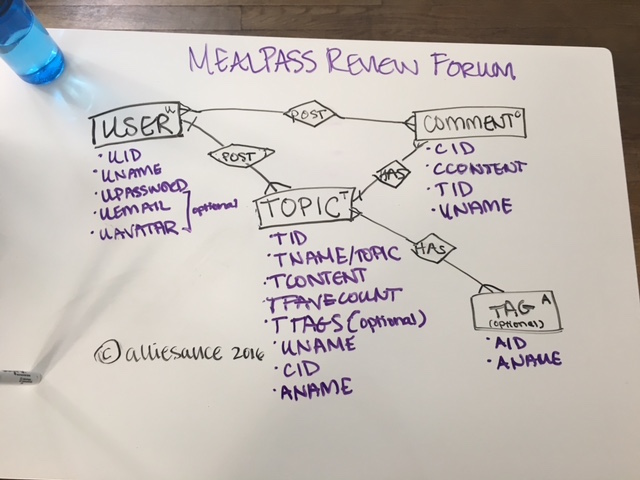 MEALPASS REVIEW FORUM
USER U
POST
COMMENT C
• UID
• UNAME
• UPASSWORD
• UEMAIL
• UAVATAR
optional
POST
HAS
• CID
• CCONTENT
• TID
• UNAME
TOPIC T
• TID
• TNAME/TOPIC
• TCONTENT
• TFAVECOUNT
• TTAGS (optional)
• UNAME
• CID
• ANAME
HAS
TAG A
(optional)
• AID
• ANAME
© alliesauce 2016